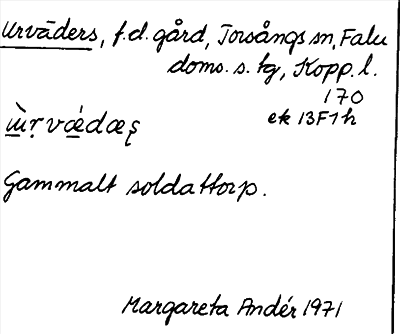 Urväders, f.d. gård, Torsångs sn, Falu
doms. s. tg, Kopp. l.
170
ek 13F1h
ɯ̀ṛvǽdæʂ
Gammalt soldattorp.
Margareta Andér 1971